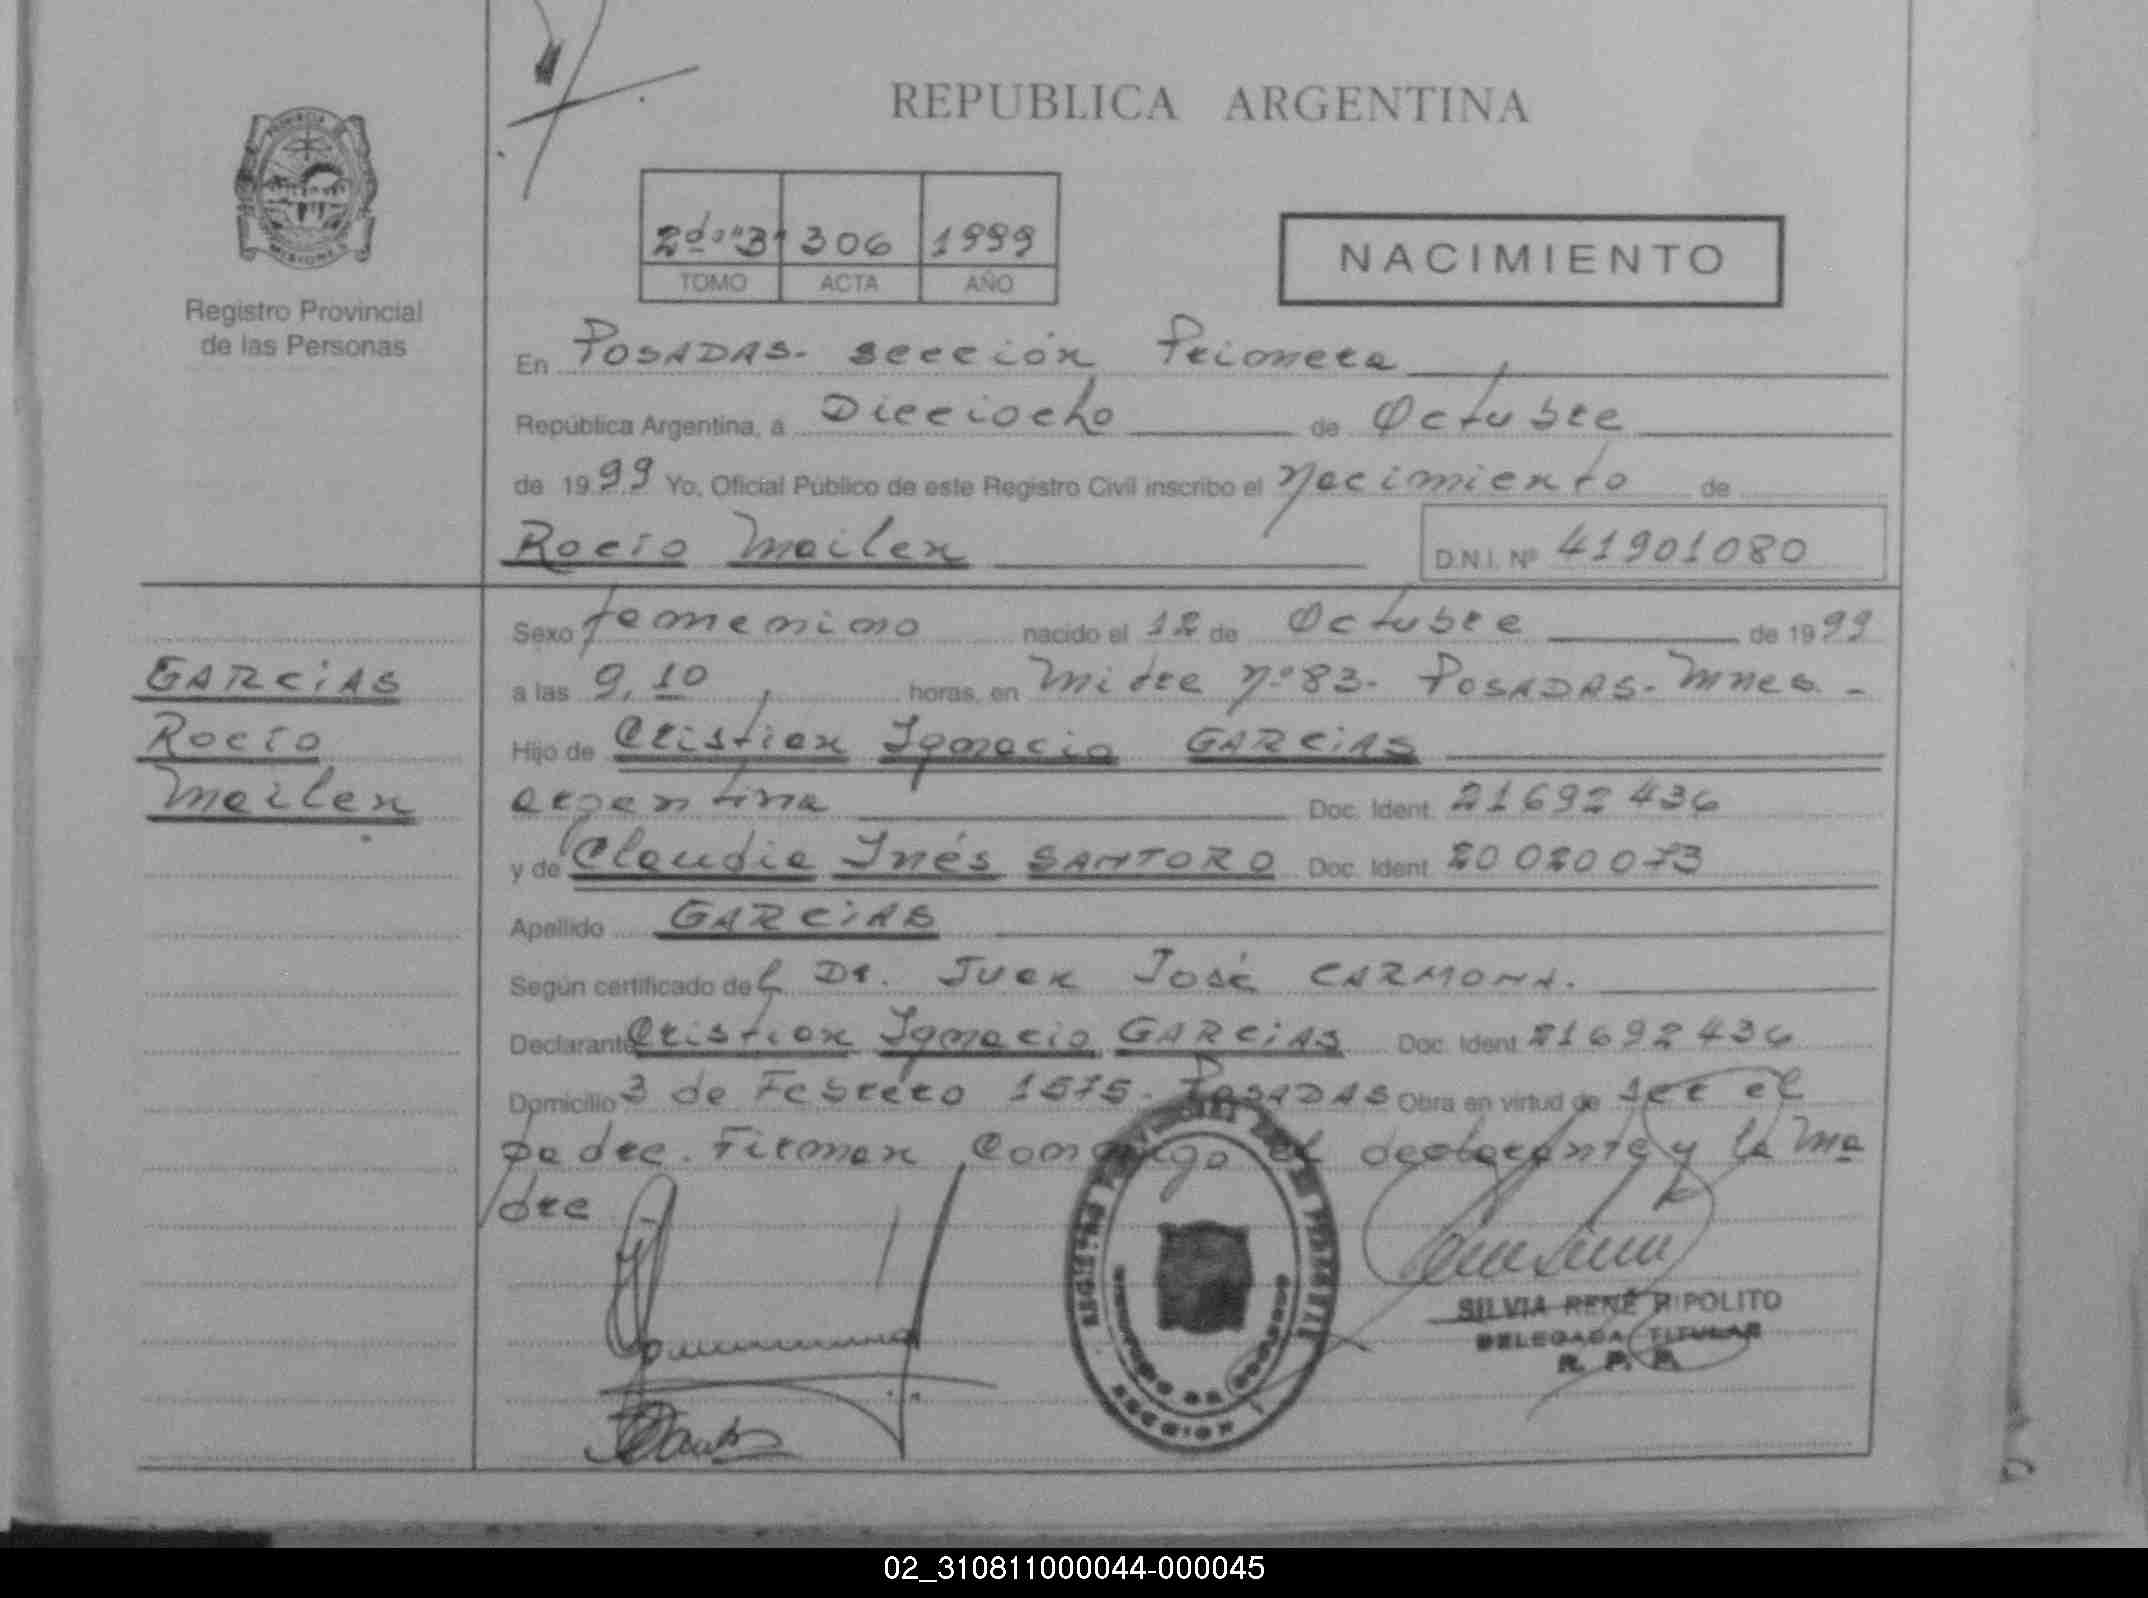 REPUBLICA ARGENTINA
2do "3" 306 1999
TOMO ACTA AÑO
NACIMIENTO
Registro Provincial
de las Personas
En POSADAS - sección Primera
República Argentina, a Dieciocho de Octubre
de 1999 Yo, Oficial Público de este Registro Civil inscribo el Nacimiento de
Rocio Mailen D.N.I. Nº 41901080
GARCIAS
Rocio
Mailen
Sexo femenino nacido el 12 de Octubre de 1999
a las 9,10 horas, en Mitre Nº 83 - POSADAS - Mnes. -
Hijo de Cristian Ignacio GARCIAS
argentina Doc. Ident. 21692436
y de Claudia Inés SANTORO Doc. Ident. 20020073
Apellido GARCIAS
Según certificado del Dr. Juan José CARMONA.
Declarante Cristian Ignacio GARCIAS Doc. Ident 21692436
Domicilio 3 de Febrero 1575 - POSADAS Obra en virtud de ser el
padre. Firman Conmigo el declarante y la ma
dre
SILVIA RENÉ HIPOLITO
DELEGADA TITULAR
R. P. P.
SECCION 1
02_310811000044-000045